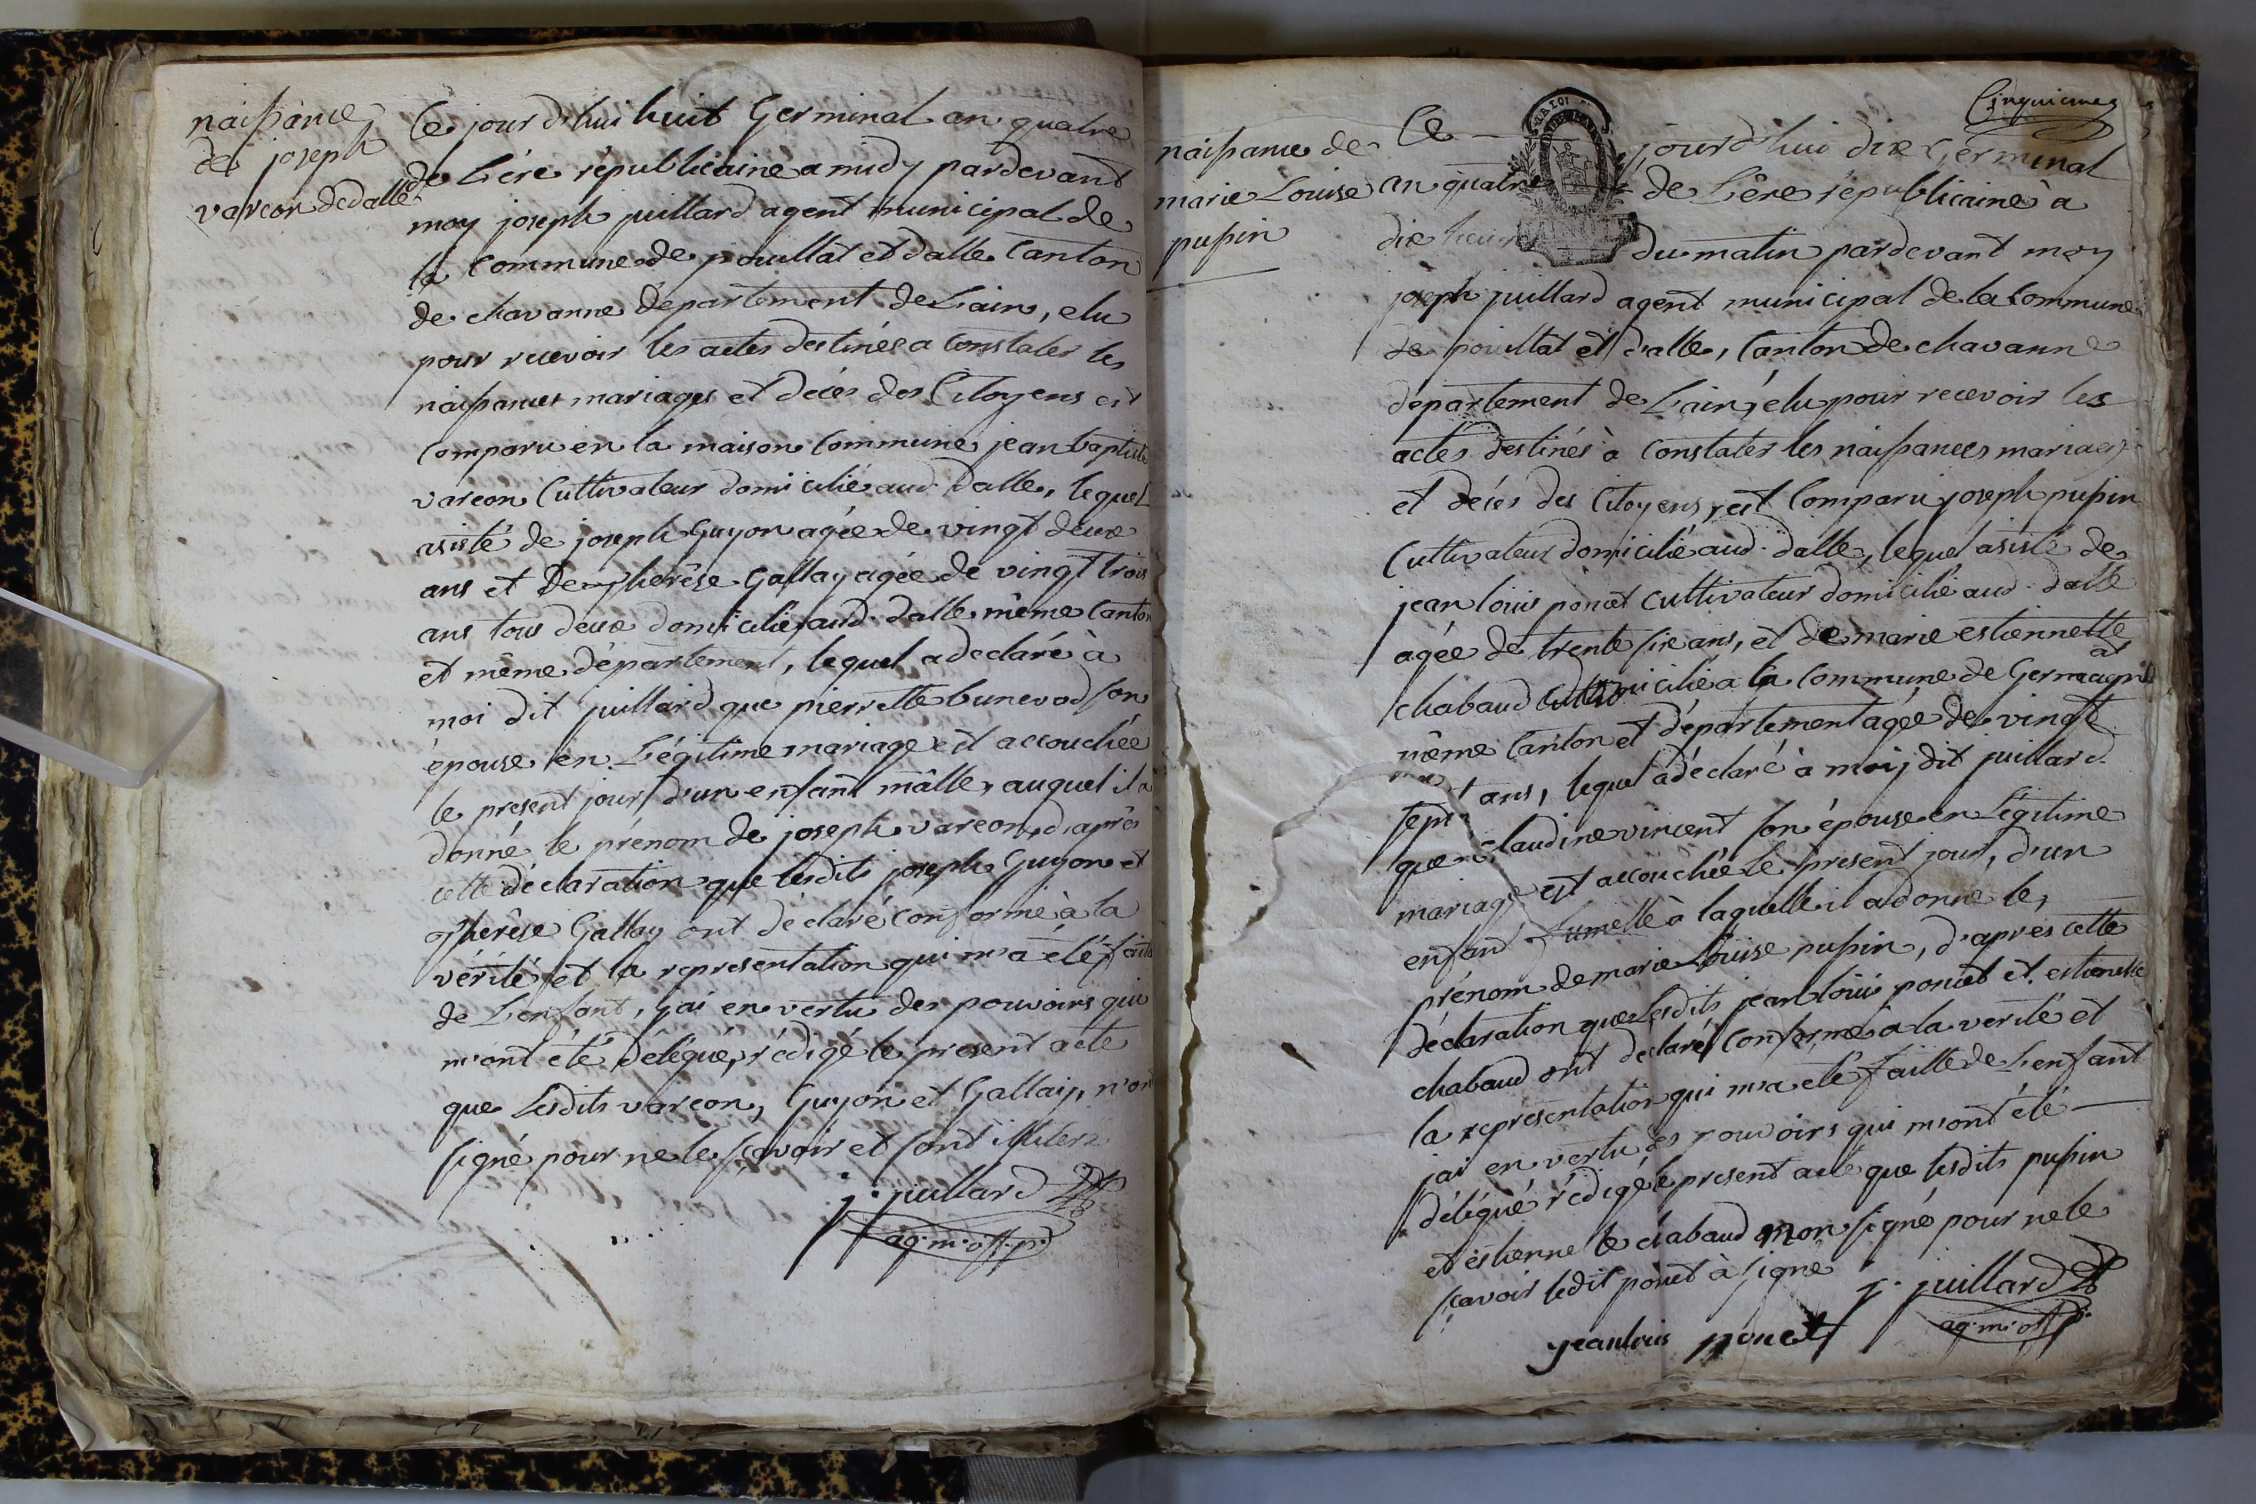 naissance
de joseph
vareon dedalle
Ce jourd'hui huit Germinal an quatre
de L'ére républicaine a midy pardevant
moy joseph juillard agent municipal de
la Commune de pouillat et dalle Canton
de chavanne département de L'ain, elu
pour recevoir les actes destinés a Constater les
naissances mariages et décés des Citoyens est
comparu en la maison Commune jean baptiste
vareon Cultivateur domicilié aud. dalle, lequel
asisté de joseph Guyon agée de vingt deux
ans et De therêse Gallay agée de vingt trois
ans tous deux domicilié aud. dalle même Canton
et même département, lequel a declaré à
moi dit juillard que pierrette bunevod son
épouse en Légitime mariage est accouchée
le present jour d'un enfant mâlle, auquel il a
donné le prénom de joseph vareon, d'aprés
cette déclaration que lesdits joseph Guyon et
therêse Gallay ont déclaré conforme à la
vérité et la representation qui m'a été faite
de L'enfant, j'ai en vertu des pouvoirs qui
m'ont été délégué, rédigé le present acte
que Lesdits vareon, Guyon et Gallay, n'ont
signé pour ne le sçavoir et sont illiteré
j. juillard
ag. m. off. p.
Cinquieme
naissance de
marie Louise
pussin
Ce jourd'hui dix Germinal
an quatre de L'ére républicaine à
dix heures du matin pardevant moy
joseph juillard agent municipal de la Commune
de pouillat et dalle, Canton de chavanne
département de L'ain, elu pour recevoir les
actes destinés à Constater les naissances mariages
et décés des Citoyens, est Comparu joseph pussin
Cultivateur domicilié aud. dalle, lequel asisté de
jean louis poncet cultivateur domicilié aud. dalle
agée de trente six ans, et de marie estiennette
chabaud domicilié a la Commune de Germagnat
même Canton et département agée de vingt
sept ans, lequel a déclaré à moi dit juillard
que claudine vincent son épouse en Légitime
mariage est accouchée le present jour, d'un
enfant fumelle à laquelle il a donné le
prénom de marie Louise pussin, d'aprés cette
déclaration que Lesdits jean louis poncet et estiennette
chabaud ont declaré Conforme a la verité et
la representation qui m'a été faitte de L'enfant
jai en vertu des pouvoirs qui m'ont été
délégué rédigé le present acte que lesdits pussin
et estiennette chabaud non signé pour ne le
sçavoir ledit poncet à signé
j. juillard
jeanlouis poncet
ag. m. off. p.